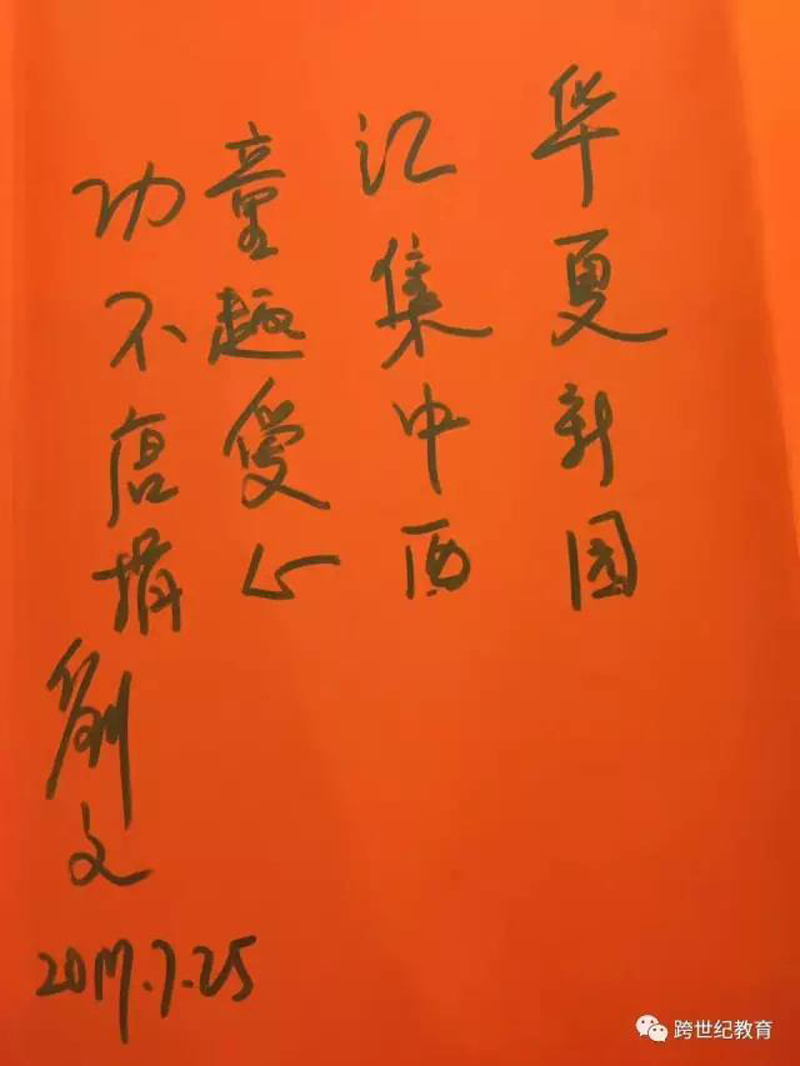 华夏新园
汇集中西
童趣爱心
功不唐捐
劉文
2017.7.25
跨世纪教育